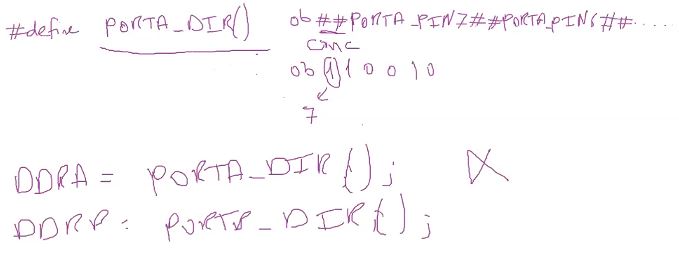 #define PORTA_DIR() 0b##PORTA_PIN7##PORTA_PIN6##.....
conc
0b110010
7
DDRA = PORTA_DIR();
DDRB = PORTB_DIR();